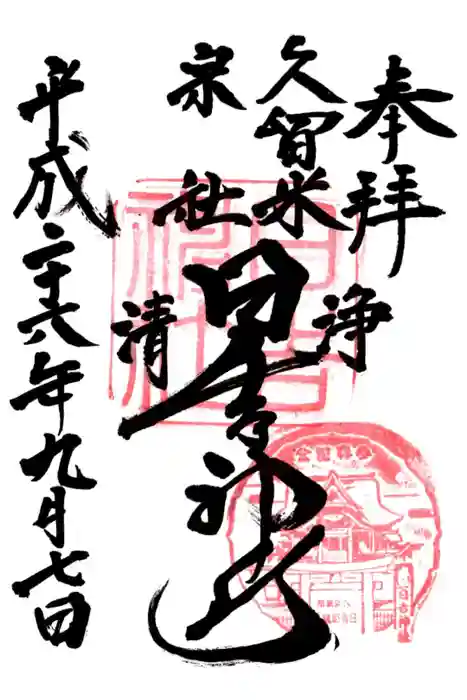 奉拝
久留米
宗社
日吉神社
清浄
平成二十六年九月七日
日吉神社